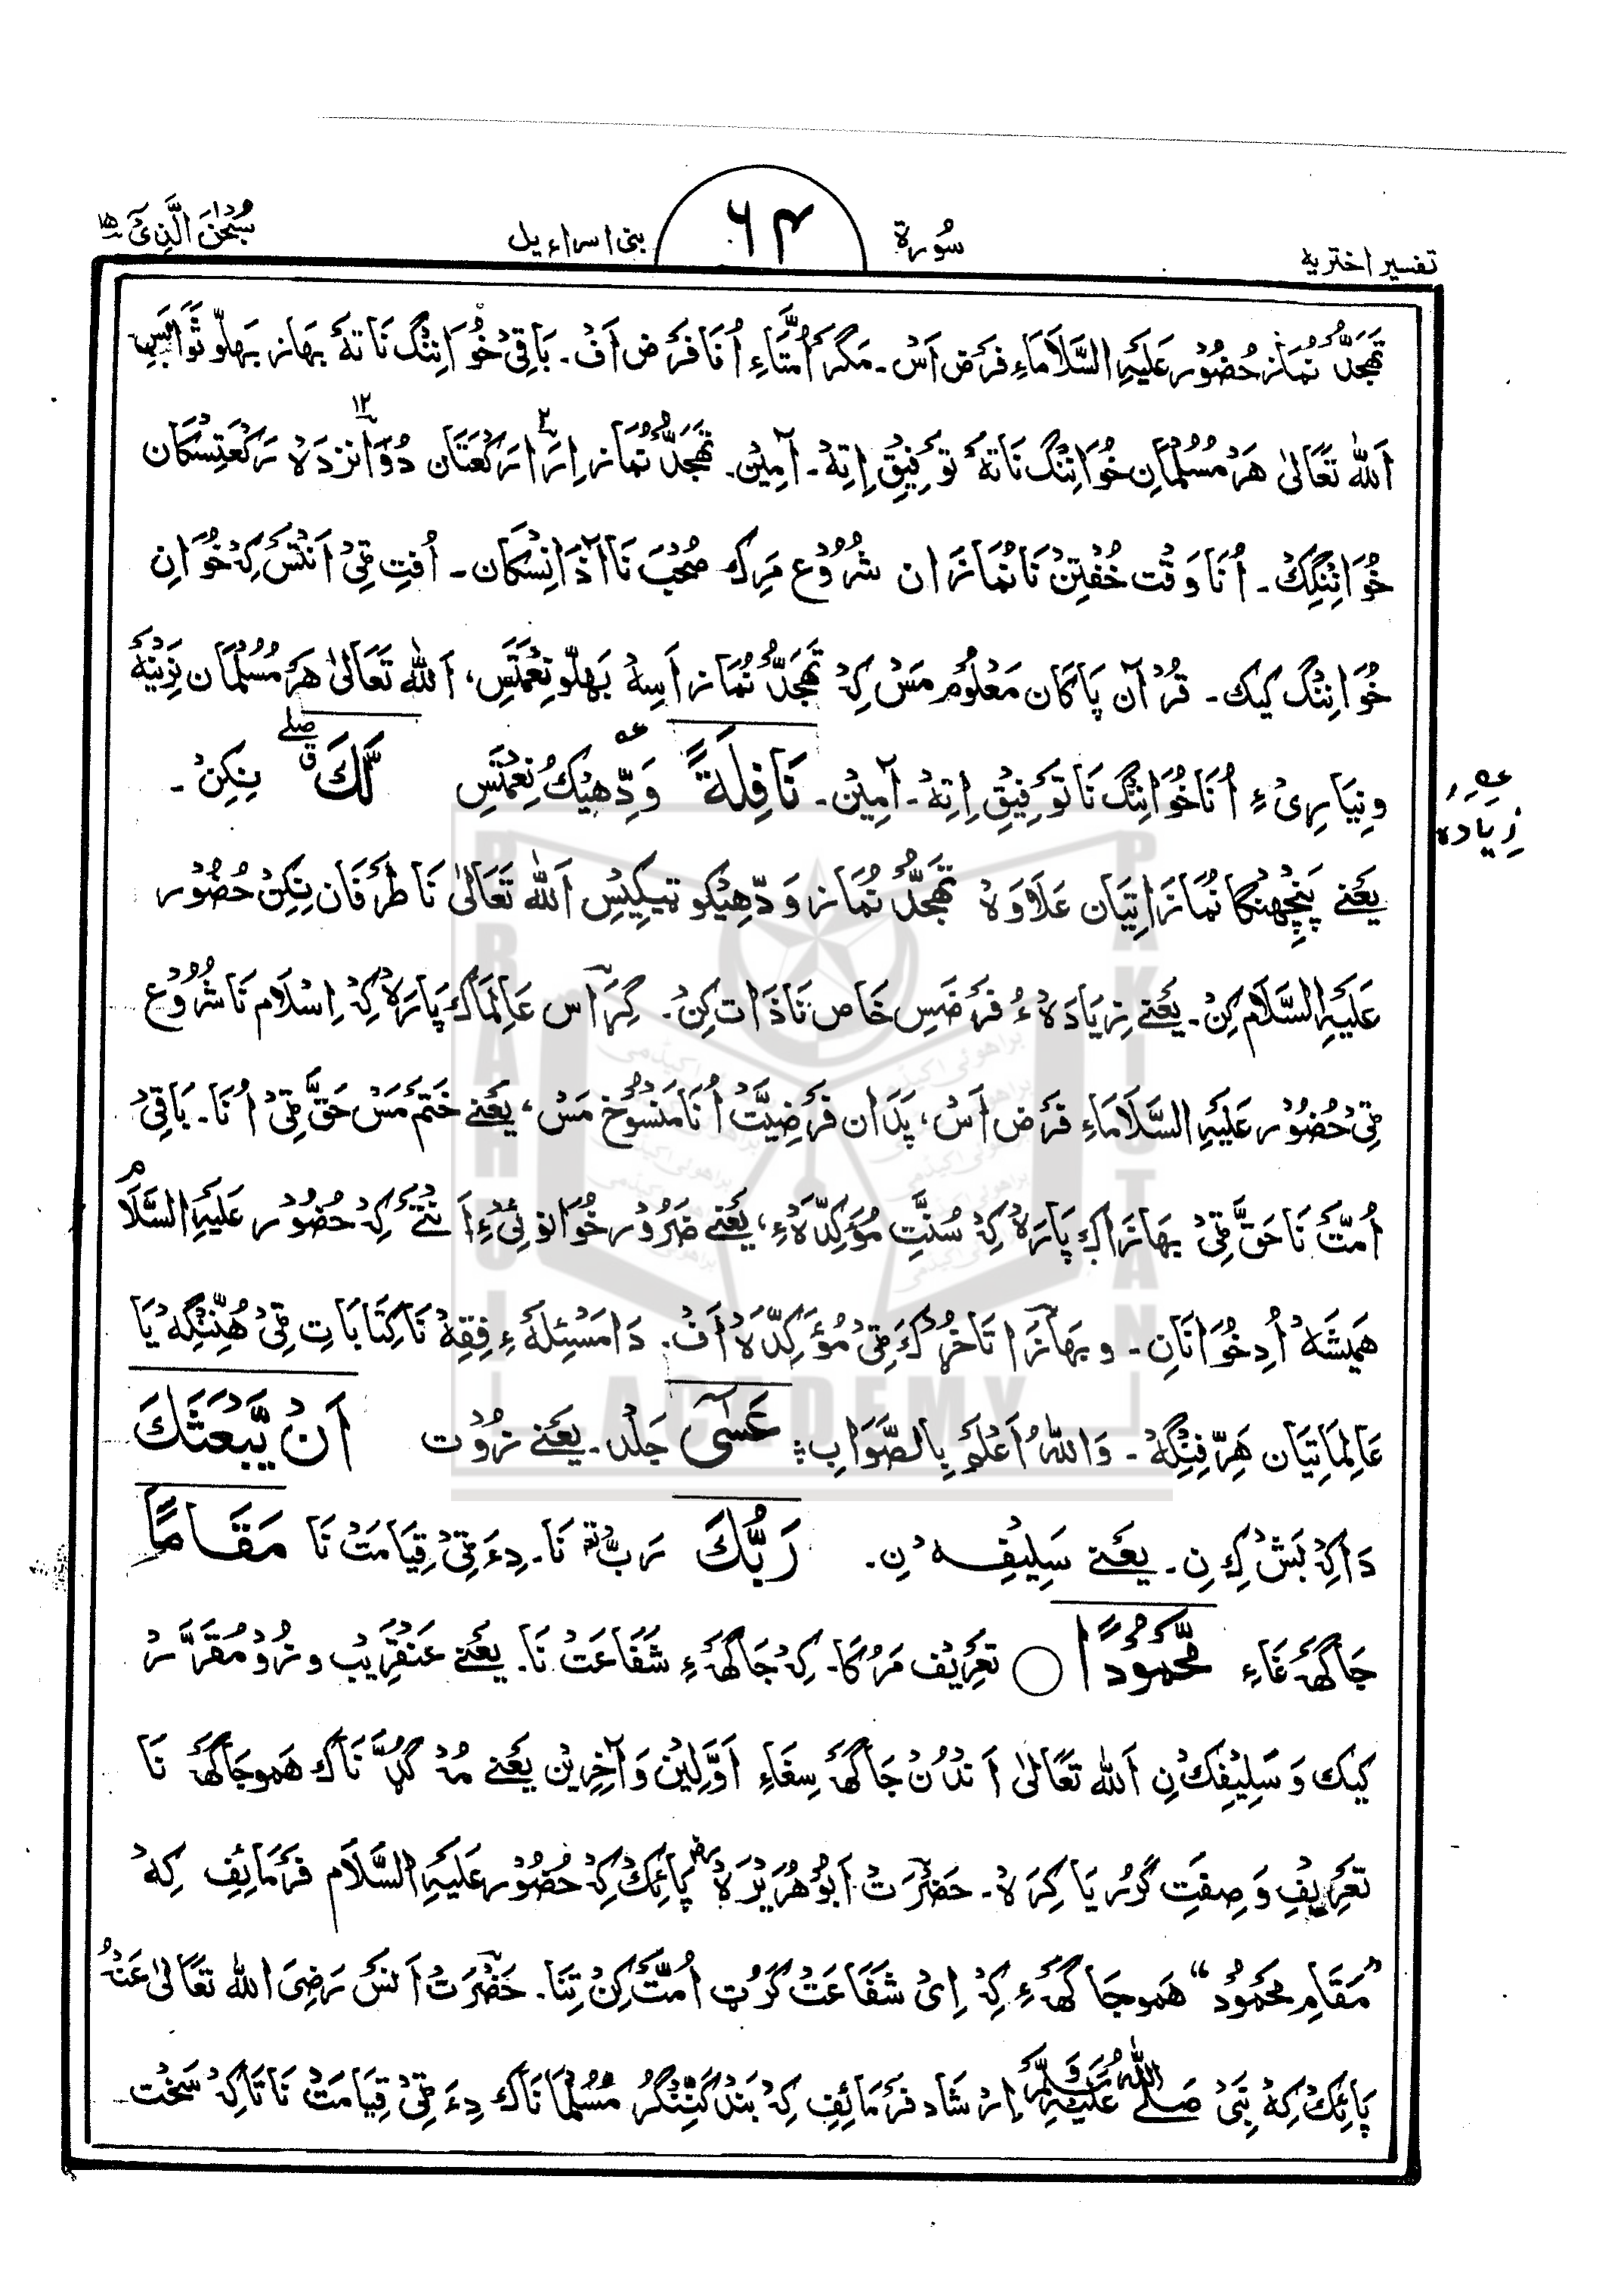 تفسير اختريه
سُورة
٦٤
بنی اسراءیل
سُبْحٰنَ الَّذِیْٓ ١٥
تَهَجُّدْ نُمَاز حُضُوْر عَلَیْہِ السَّلَامَاءِ فَرَض اَسْ۔ مَگَر اُمَّتَاءِ اُنَا فَرَض اَفْ۔ بَاقِیْ خُوَانِنْگ نَا تَهٗ بهَاز بَهلّو ثَوَابَسِ
اَللّٰه تَعَالیٰ هَر مُسُلْمَانِ خُوَانِنْگ نَا تَهٗ تَوفِیْقِ اِتِهْ۔ آمِیْن۔ تَهَجُّدْ نُمَاز اِرَا ٢ رَکْعَتَان دُوَانْزْدَهْ ١٢ رَکْعَتِسْکَان
خُوَانِنْگِکْ۔ اُنَا وَقْت خُفْتِنْ نَا نُمَازَان شُرُوْع مَرِک صُحْبَ نَا آذَانِسْکَان۔ اُفِتِ ٹِیْ اَنْتَسْ کِهْ خُوَانِ
خُوَانِنْگ کیک۔ قُرْآن پَاکَان مَعْلُوم مَسْ کِهْ تَهَجُّدْ نُمَاز اَسِهْ بَهلّو نِعْمَتَسِ، اَللّٰه تَعَالیٰ هَر مُسُلْمَان نَرِیْنَهٗ
و نِیَارِیْ ءِ اُنَا خُوَانِنْگ نَا تَوفِیْقِ اِتِهْ۔ آمِیْن۔ نَافِلَةً وَدِّهِیْکُ نِعْمَتَسِ لَّكَ نِکِنْ۔
عہ زِیَادہ
یَعْنے پَنْچِهنْگَا نُمَازَاتِیَان عَلَاوَهْ تَهَجُّدْ نُمَاز وَدِّهِیْکو تیکیسِ اَللّٰه تَعَالیٰ نَا طَرْفَان نِکِنْ حُضُوْر
عَلَیْہِ السَّلَام کِنْ۔ یَعْنے زِیَادَهْ ءُ فَرَضَسِ خَاص نَا ذَات کِنْ۔ گِرَاس عَالِمَاک پَارَهْ کِهْ اِسْلَام نَا شُرُوْع
ٹِیْ حُضُوْر عَلَیْہِ السَّلَامَاءِ فَرَض اَسْ، پَدَان فَرَضِیَّتْ اُنَا مَنْسُوْخ مَسْ، یَعْنے خَتَم مَسْ حَقَّ ٹِیْ اُنَا۔ بَاقِیْ
اُمَّتَ نَا حَقَّ ٹِیْ بهَازَاک پَارَهْ کِهْ سُنَّتِ مُؤَکِدَّهءِ، یَعْنے ضَرُوْر خُوَانوئِیءِ اَنْتَے کِهْ حُضُوْر عَلَیْہِ السَّلَام
هَمِیْشَهْ اُدِ خُوَانَانِ۔ و بهَازَاتَا خُرُک ٹِیْ مُؤَکِدَّهْ اَفْ۔ دَا مَسْئَلَهءِ فِقِهْ نَا کِتَابَاتِ ٹِیْ هُنِّنْگِهْ یَا
عَالِمَاتِیَان هَرِّفِنْگِهْ۔ وَاللّٰهُ اَعْلَم بِالصَّوَاب؛ عَسٰٓى جَلْد۔ یَعْنے زُوْت اَنْ یَّبْعَثَكَ
دَاکِهْ بَشْ کِ نِ۔ یَعْنے سَلِیْفِهْ نِ۔ رَبُّكَ رَبّ نَا۔ دِءَ ٹِیْ قِیَامَتْ نَا مَقَامًا
جَاگَهْ غَاءِ مَّحْمُوْدًا ◯ تَعْرِیْف مَرُکَا۔ کِهْ جَاگَهءِ شَفَاعَتْ نَا۔ یَعْنے عَنْقَرِیْب و زُوْ مُقَرَّرْ
کیک وَ سَلِیْفِک نِ اَللّٰه تَعَالیٰ اَنْدُنْ جَاگَهْ سِغَاءِ اَوَّلِیْن وَ آخِرِیْن یَعْنے مُدْ گُدُّنَاک هَمو جَاگَهْ نَا
تَعْرِیْفِ وَ صِفَتِ گُرْ یَا کِرَهْ۔ حَضْرَتْ اَبُوْهُرَیْرَهْ پَائِکْ کِهْ حُضُوْر عَلَیْہِ السَّلَام فَرْمَائِف کِهْ
"مَقَامِ مَحْمُوْد" هَمو جَاگَهءِ کِهْ اِیْ شَفَاعَتْ کَرُوْ اُمَّتَ کِنْ تِنَا۔ حَضْرَتْ اَنَسْ رَضِیَ اللّٰه تَعَالیٰ عَنْهُ
پَائِکْ کِهْ نَبِیْ صَلَّے اللّٰهُ عَلَیْہِ وَسَلَّم اِرْشَاد فَرْمَائِفِ کِهْ بَنْد کَنِّنْگُر مُسُلْمَانَاک دِءَ ٹِیْ قِیَامَتْ نَا تَاکِهْ سَخْت